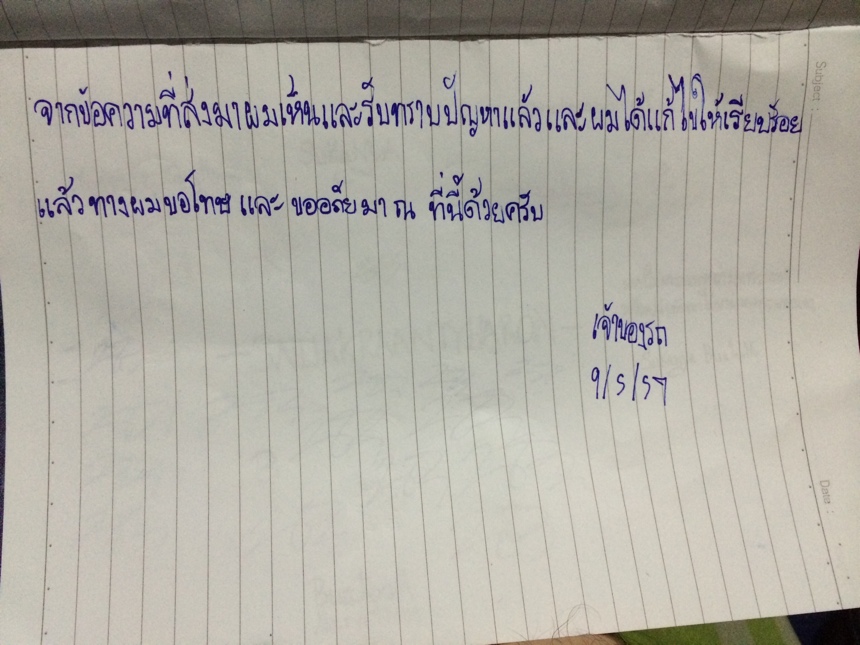 จากข้อความที่ส่งมาผมเห็นและรับทราบปัญหาแล้วและผมได้แก้ไขให้เรียบร้อย
แล้วทางผมขอโทษ และ ขออภัยมา ณ ที่นี้ด้วยครับ
เจ้าของรถ
9/5/57
Subject :
Date :